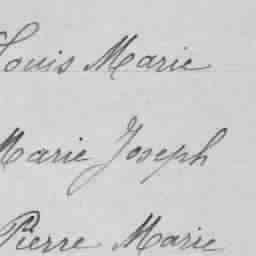 Louis Marie
Marie Joseph
Pierre Marie